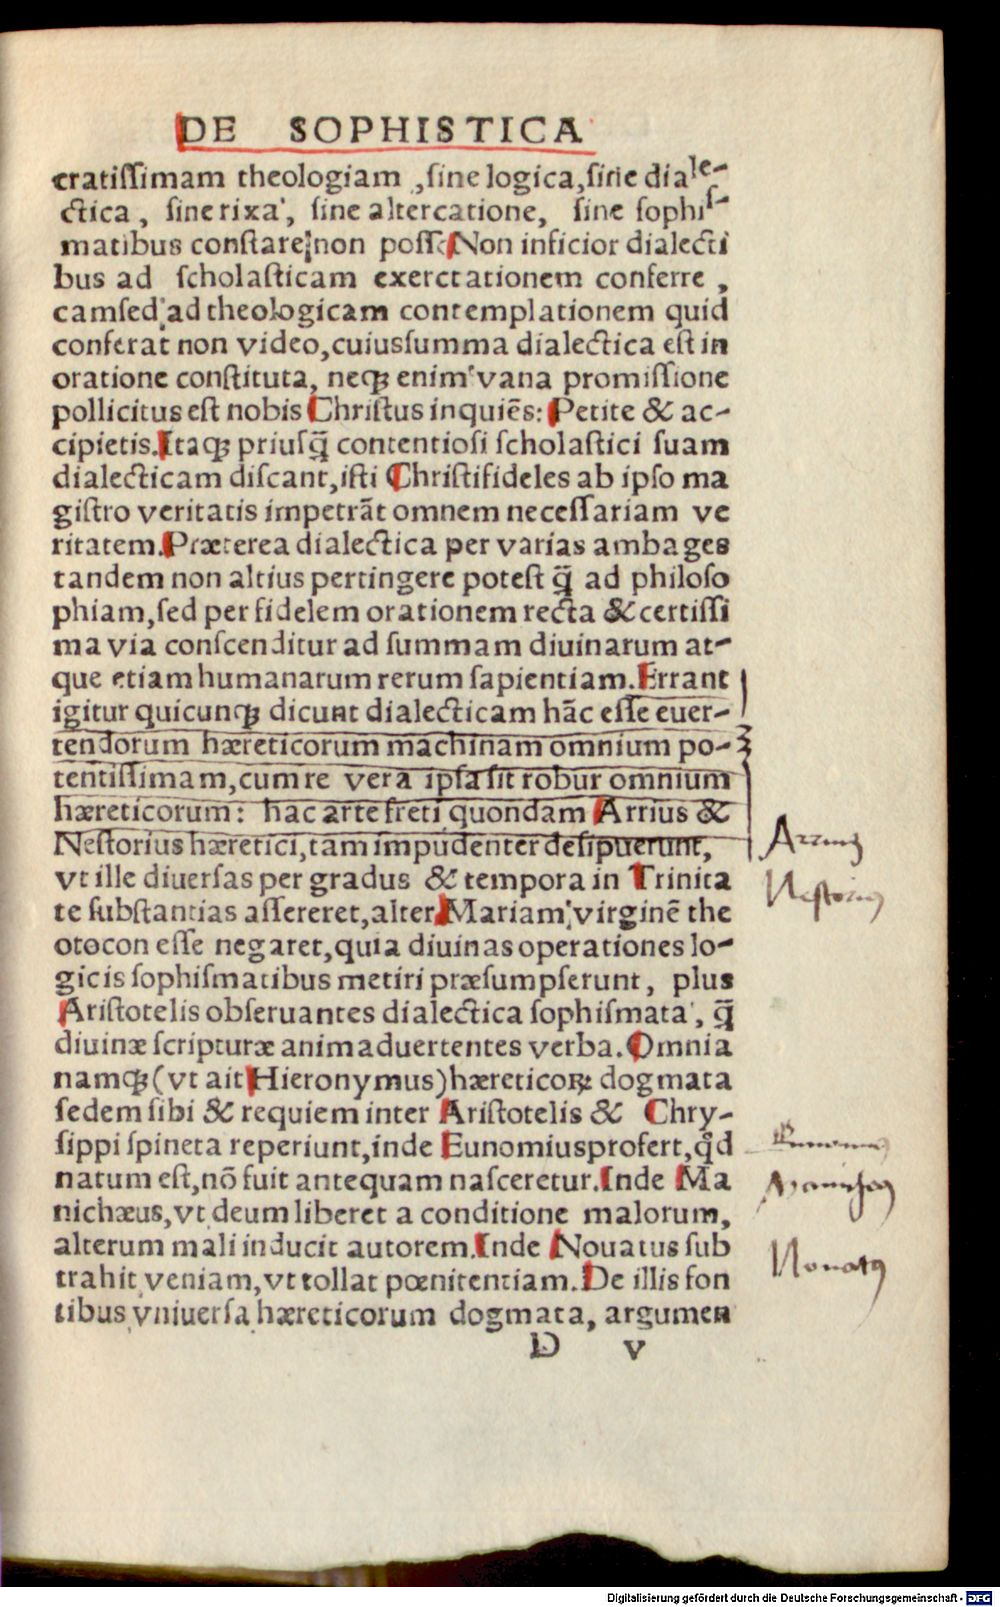 DE SOPHISTICA
cratissimam theologiam, sine logica, sine diale-
ctica, sine rixa, sine altercatione, sine sophis-
matibus constare non posse Non inficior dialecti
bus ad scholasticam exercctationem conferre,
camsed ad theologicam contemplationem quid
conferat non video, cuius summa dialectica est in
oratione constituta, neqꝫ enim vana promissione
pollicitus est nobis Christus inquiēs: Petite & ac-
cipietis. Itaqꝫ priusq̄ contentiosi scholastici suam
dialecticam discant, isti Christifideles ab ipso ma
gistro veritatis impetrāt omnem necessariam ve
ritatem. Præterea dialectica per varias ambages
tandem non altius pertingere potest q̄ ad philoso
phiam, sed per fidelem orationem recta & certissi
ma via conscenditur ad summam diuinarum at-
que etiam humanarum rerum sapientiam. Errant
igitur quicunqꝫ dicunt dialecticam hāc esse euer-
tendorum hæreticorum machinam omnium po-
tentissimam, cum re vera ipsa sit robur omnium
hæreticorum: hac arte freti quondam Arrius &
Nestorius hæretici, tam impudenter desipuerunt,
vt ille diuersas per gradus & tempora in Trinita
te substantias assereret, alter Mariam virginē the
otocon esse negaret, quia diuinas operationes lo-
gicis sophismatibus metiri præsumpserunt, plus
Aristotelis obseruantes dialectica sophismata, q̄
diuinæ scripturæ animaduertentes verba. Omnia
namqꝫ (vt ait Hieronymus) hæreticoꝝ dogmata
sedem sibi & requiem inter Aristotelis & Chry-
sippi spineta reperiunt, inde Eunomius profert, qd̄
natum est, nō fuit antequam nasceretur. Inde Ma
nichæus, vt deum liberet a conditione malorum,
alterum mali inducit autorem. Inde Nouatus sub
trahit veniam, vt tollat pœnitentiam. De illis fon
tibus vniuersa hæreticorum dogmata, argumen
D v
Arrius
Nestorius
Eunomius
Manicheus
Nouatus
Digitalisierung gefördert durch die Deutsche Forschungsgemeinschaft - DFG